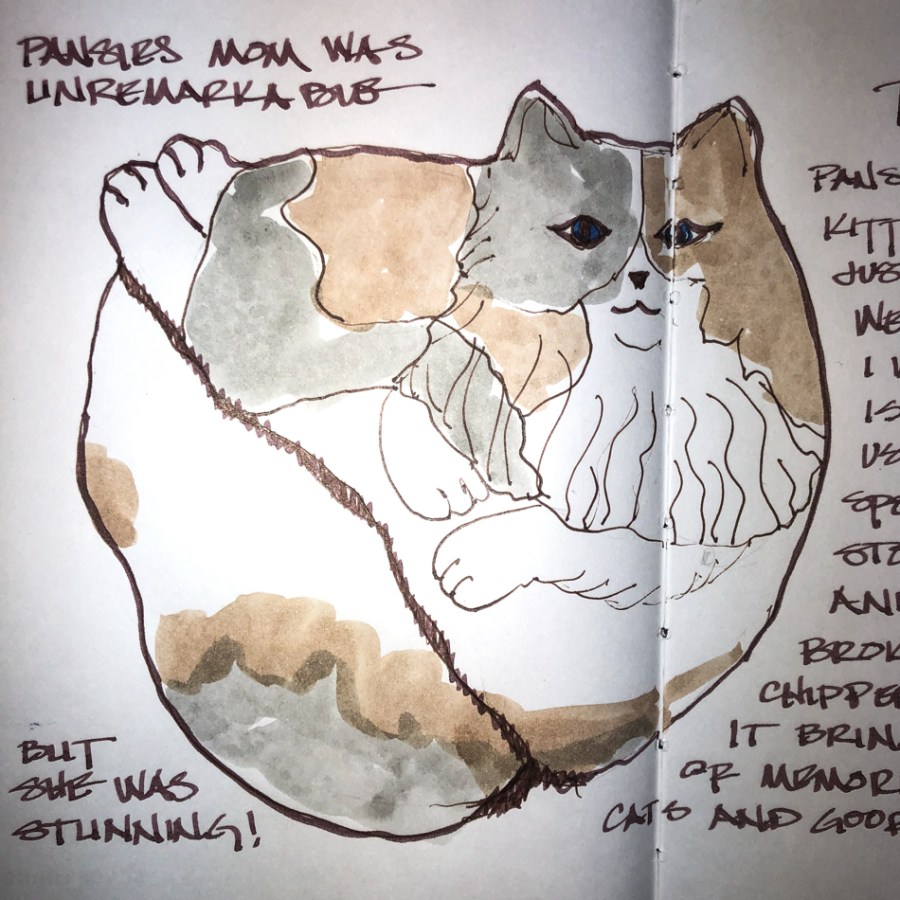 PANSIES MOM WAS
UNREMARKABLE
BUT
SHE WAS
STUNNING!
T
PANS
KITT
JUS
WE
I
IS
USE
SPE
STO
AND
BROK
CHIPPE
IT BRIN
OF MEMOR
CATS AND GOOF